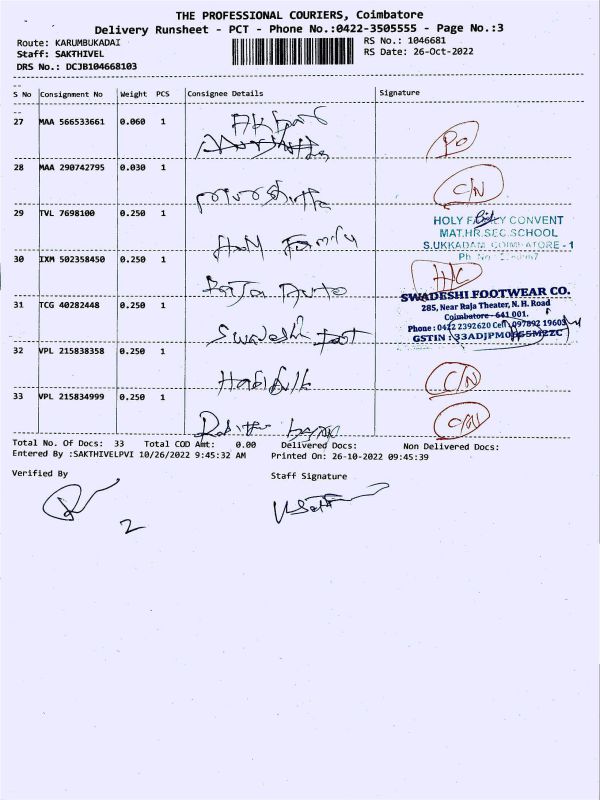 THE PROFESSIONAL COURIERS, Coimbatore
Delivery Runsheet - PCT - Phone No.:0422-3505555 - Page No.:3
Route: KARUMBUKADAI
RS No.: 1046681
Staff: SAKTHIVEL
RS Date: 26-Oct-2022
DRS No.: DCJB104668103
S No Consignment No Weight PCS Consignee Details Signature
27 MAA 566533661 0.060 1
28 MAA 290742795 0.030 1 C/N
29 TVL 7698100 0.250 1 Holy Family
HOLY FAMILY CONVENT
MAT.HR.SEC.SCHOOL
S.UKKADAM COIMBATORE - 1
30 IXM 502358450 0.250 1 Auto
31 TCG 40282448 0.250 1 Swadeshi Foot
SWADESHI FOOTWEAR CO.
285, Near Raja Theater, N. H. Road
Coimbatore - 641 001.
Phone : 0422 2392620 Cell : 097892 19603
32 VPL 215838358 0.250 1 C/N
33 VPL 215834999 0.250 1
Total No. Of Docs: 33 Total COD Amt: 0.00 Delivered Docs: Non Delivered Docs:
Entered By :SAKTHIVELPVI 10/26/2022 9:45:32 AM Printed On: 26-10-2022 09:45:39
Verified By
Staff Signature
2